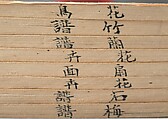 花鳥
竹譜
蘭譜
花卉
扇面
花卉
石譜
梅譜